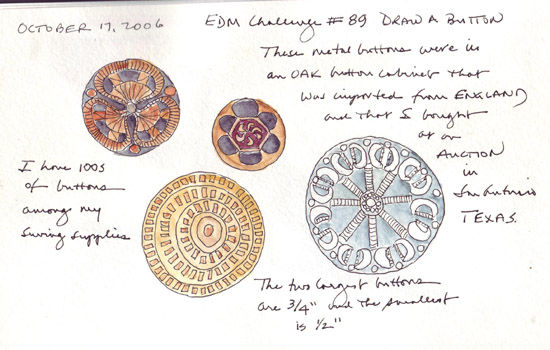 OCTOBER 17, 2006
EDM Challenge #89 DRAW A BUTTON
These metal buttons were in
an OAK button cabinet that
was imported from ENGLAND
and that I bought
at an
AUCTION
in
San Antonio
TEXAS.
I have 100s
of buttons
among my
Sewing Supplies
The two largest buttons
are 3/4" and the smallest
is 1/2"